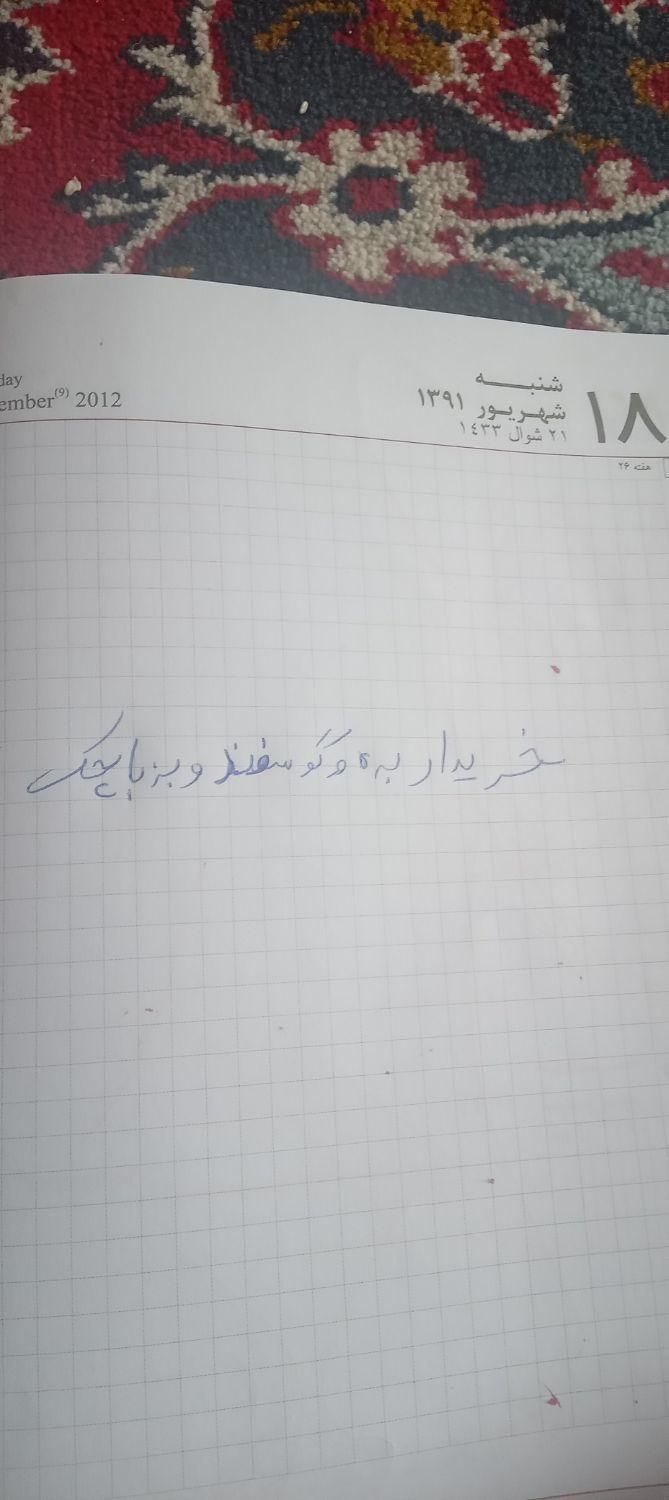 day
ember(9) 2012
۱۸ شنبه
شهریور ۱۳۹۱
۲۱ شوال ۱٤۳۳
هفته ۲۶
خریدار بره و گوسفند و بز با چک